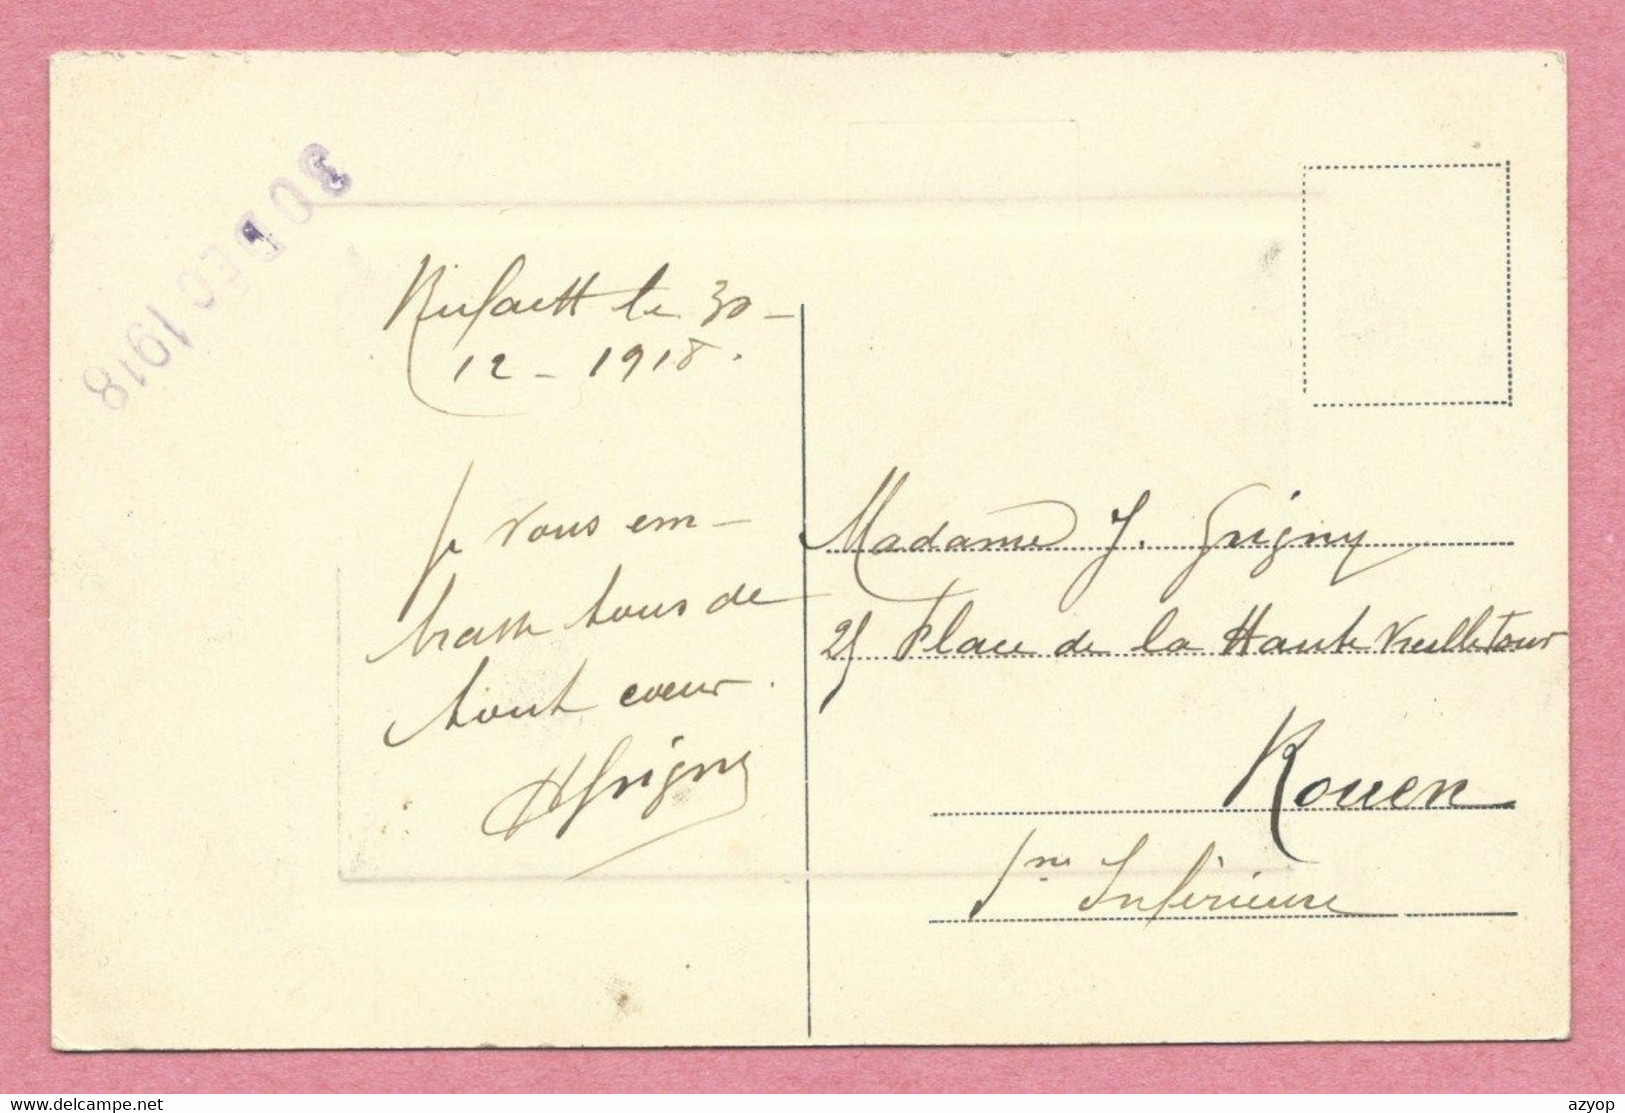 30 DEC 1918
Rufach le 30 -
12 - 1918.
Je vous em-
brasse tous de
tout coeur.
HGrigny
Madame J. Grigny
25 Place de la Haute Vieille Tour
Rouen
Sne Inférieure
delcampe.net
azyop